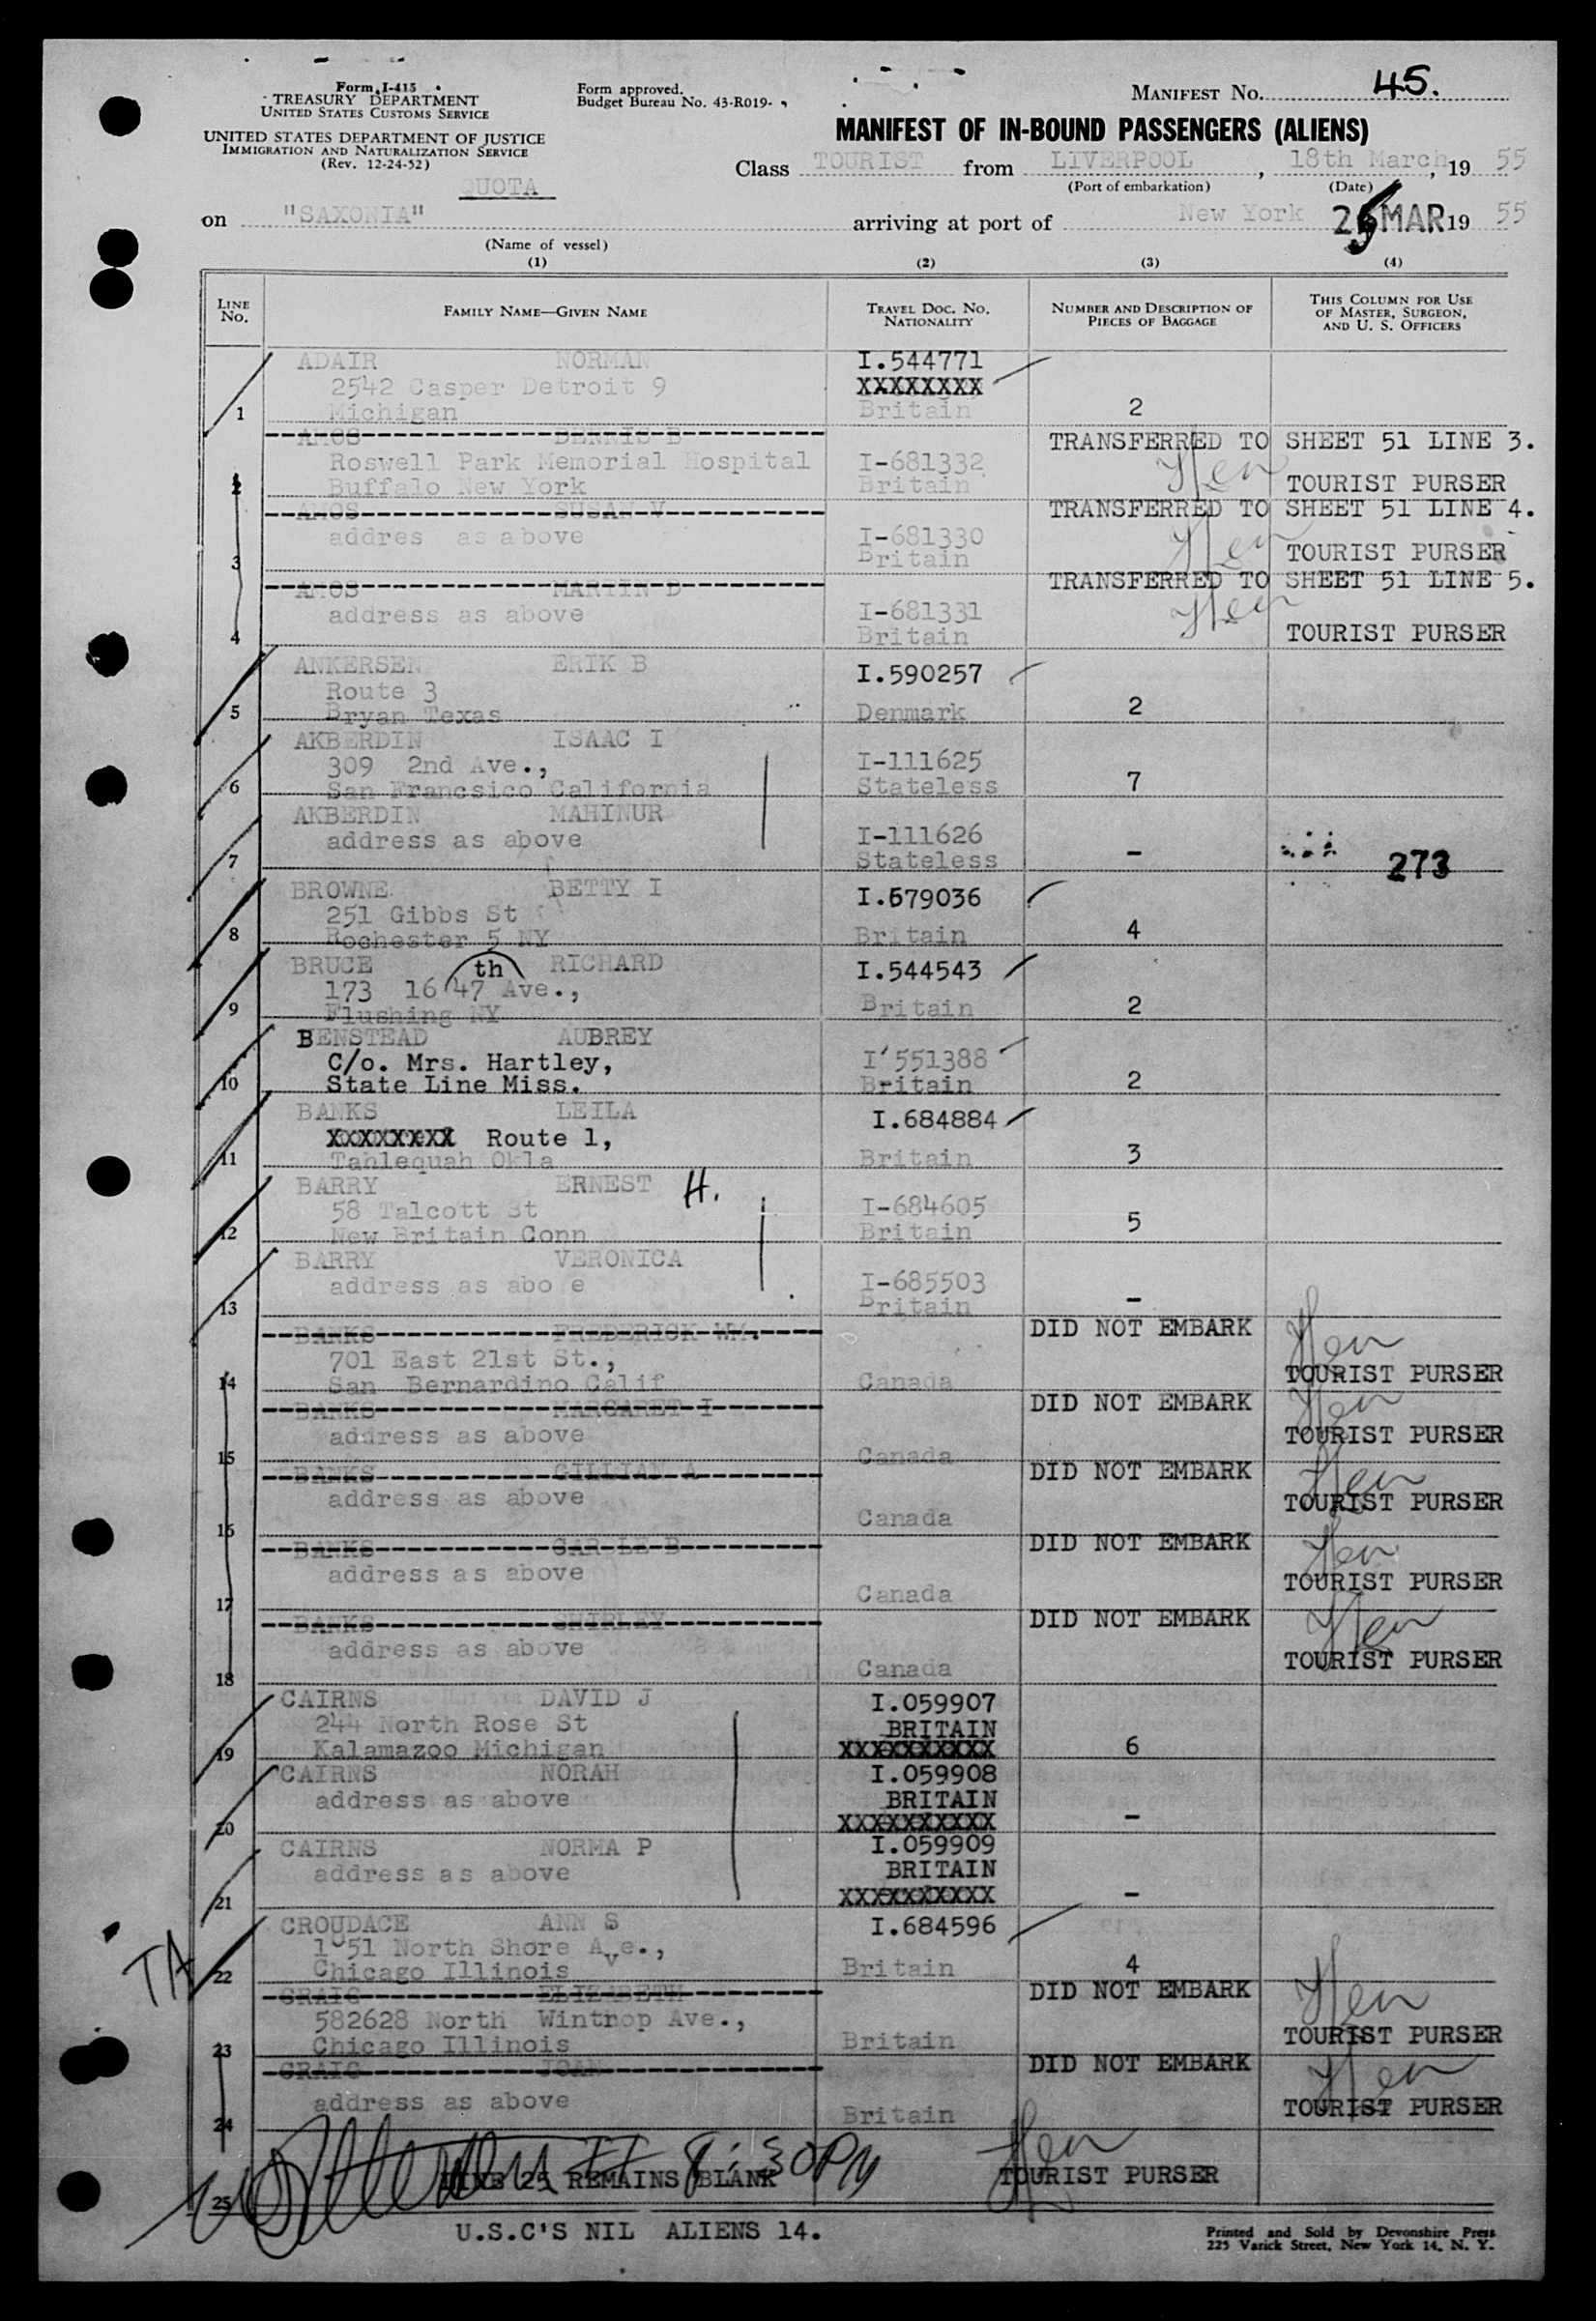 Form I-415
TREASURY DEPARTMENT
UNITED STATES CUSTOMS SERVICE
UNITED STATES DEPARTMENT OF JUSTICE
IMMIGRATION AND NATURALIZATION SERVICE
(Rev. 12-24-52)
Form approved.
Budget Bureau No. 43-R019-
MANIFEST NO. 45.
MANIFEST OF IN-BOUND PASSENGERS (ALIENS)
Class TOURIST from LIVERPOOL, 18th March, 19 55
(Port of embarkation) (Date)
QUOTA
on "SAXONIA" arriving at port of New York 25 MAR 19 55
(Name of vessel)
(1) (2) (3) (4)
LINE No. FAMILY NAME—GIVEN NAME TRAVEL DOC. NO. NATIONALITY NUMBER AND DESCRIPTION OF PIECES OF BAGGAGE THIS COLUMN FOR USE OF MASTER, SURGEON, AND U. S. OFFICERS
ADAIR NORMAN I.544771
2542 Casper Detroit 9 XXXXXXXX
1 Michigan Britain 2
AMOS DENNIS B TRANSFERRED TO SHEET 51 LINE 3.
Roswell Park Memorial Hospital I-681332
2 Buffalo New York Britain TOURIST PURSER
AMOS SUSAN V TRANSFERRED TO SHEET 51 LINE 4.
addres as above I-681330
3 Britain TOURIST PURSER
AMOS MARTIN D TRANSFERRED TO SHEET 51 LINE 5.
address as above I-681331
4 Britain TOURIST PURSER
ANKERSEN ERIK B I.590257
Route 3
5 Bryan Texas Denmark 2
AKBERDIN ISAAC I
309 2nd Ave., I-111625
6 San Francsico California Stateless 7
AKBERDIN MAHINUR
address as above I-111626
7 Stateless - 273
BROWNE BETTY I I.679036
251 Gibbs St
8 Rochester 5 NY Britain 4
BRUCE RICHARD I.544543
173 16 47 th Ave.,
9 Flushing NY Britain 2
BENSTEAD AUBREY
C/o. Mrs. Hartley, I'551388
10 State Line Miss. Britain 2
BANKS LEILA I.684884
XXXXXXXX Route 1,
11 Tahlequah Okla Britain 3
BARRY ERNEST H.
58 Talcott St I-684605
12 New Britain Conn Britain 5
BARRY VERONICA
address as abo e I-685503
13 Britain -
BANKS FREDERICK WM. DID NOT EMBARK
701 East 21st St.,
14 San Bernardino Calif Canada TOURIST PURSER
BANKS MARGARET I DID NOT EMBARK
address as above TOURIST PURSER
15 Canada
BANKS GILLIAN A DID NOT EMBARK
address as above TOURIST PURSER
16 Canada
BANKS CAROLE B DID NOT EMBARK
address as above TOURIST PURSER
17 Canada
BANKS SHIRLEY DID NOT EMBARK
address as above TOURIST PURSER
18 Canada
CAIRNS DAVID J I.059907
244 North Rose St BRITAIN
19 Kalamazoo Michigan XXXXXXXXXX 6
CAIRNS NORAH I.059908
address as above BRITAIN
20 XXXXXXXXXX -
CAIRNS NORMA P I.059909
address as above BRITAIN
21 XXXXXXXXXX -
CROUDACE ANN S I.684596
1 51 North Shore Ave.,
TA 22 Chicago Illinois Britain 4
CRAIG ELIZABETH DID NOT EMBARK
582628 North Wintrop Ave., TOURIST PURSER
23 Chicago Illinois Britain
CRAIG JOAN DID NOT EMBARK
address as above TOURIST PURSER
24 Britain
8:30PM
25 LINE 25 REMAINS BLANK TOURIST PURSER
U.S.C'S NIL ALIENS 14.
Printed and Sold by Devonshire Press
225 Varick Street, New York 14, N. Y.